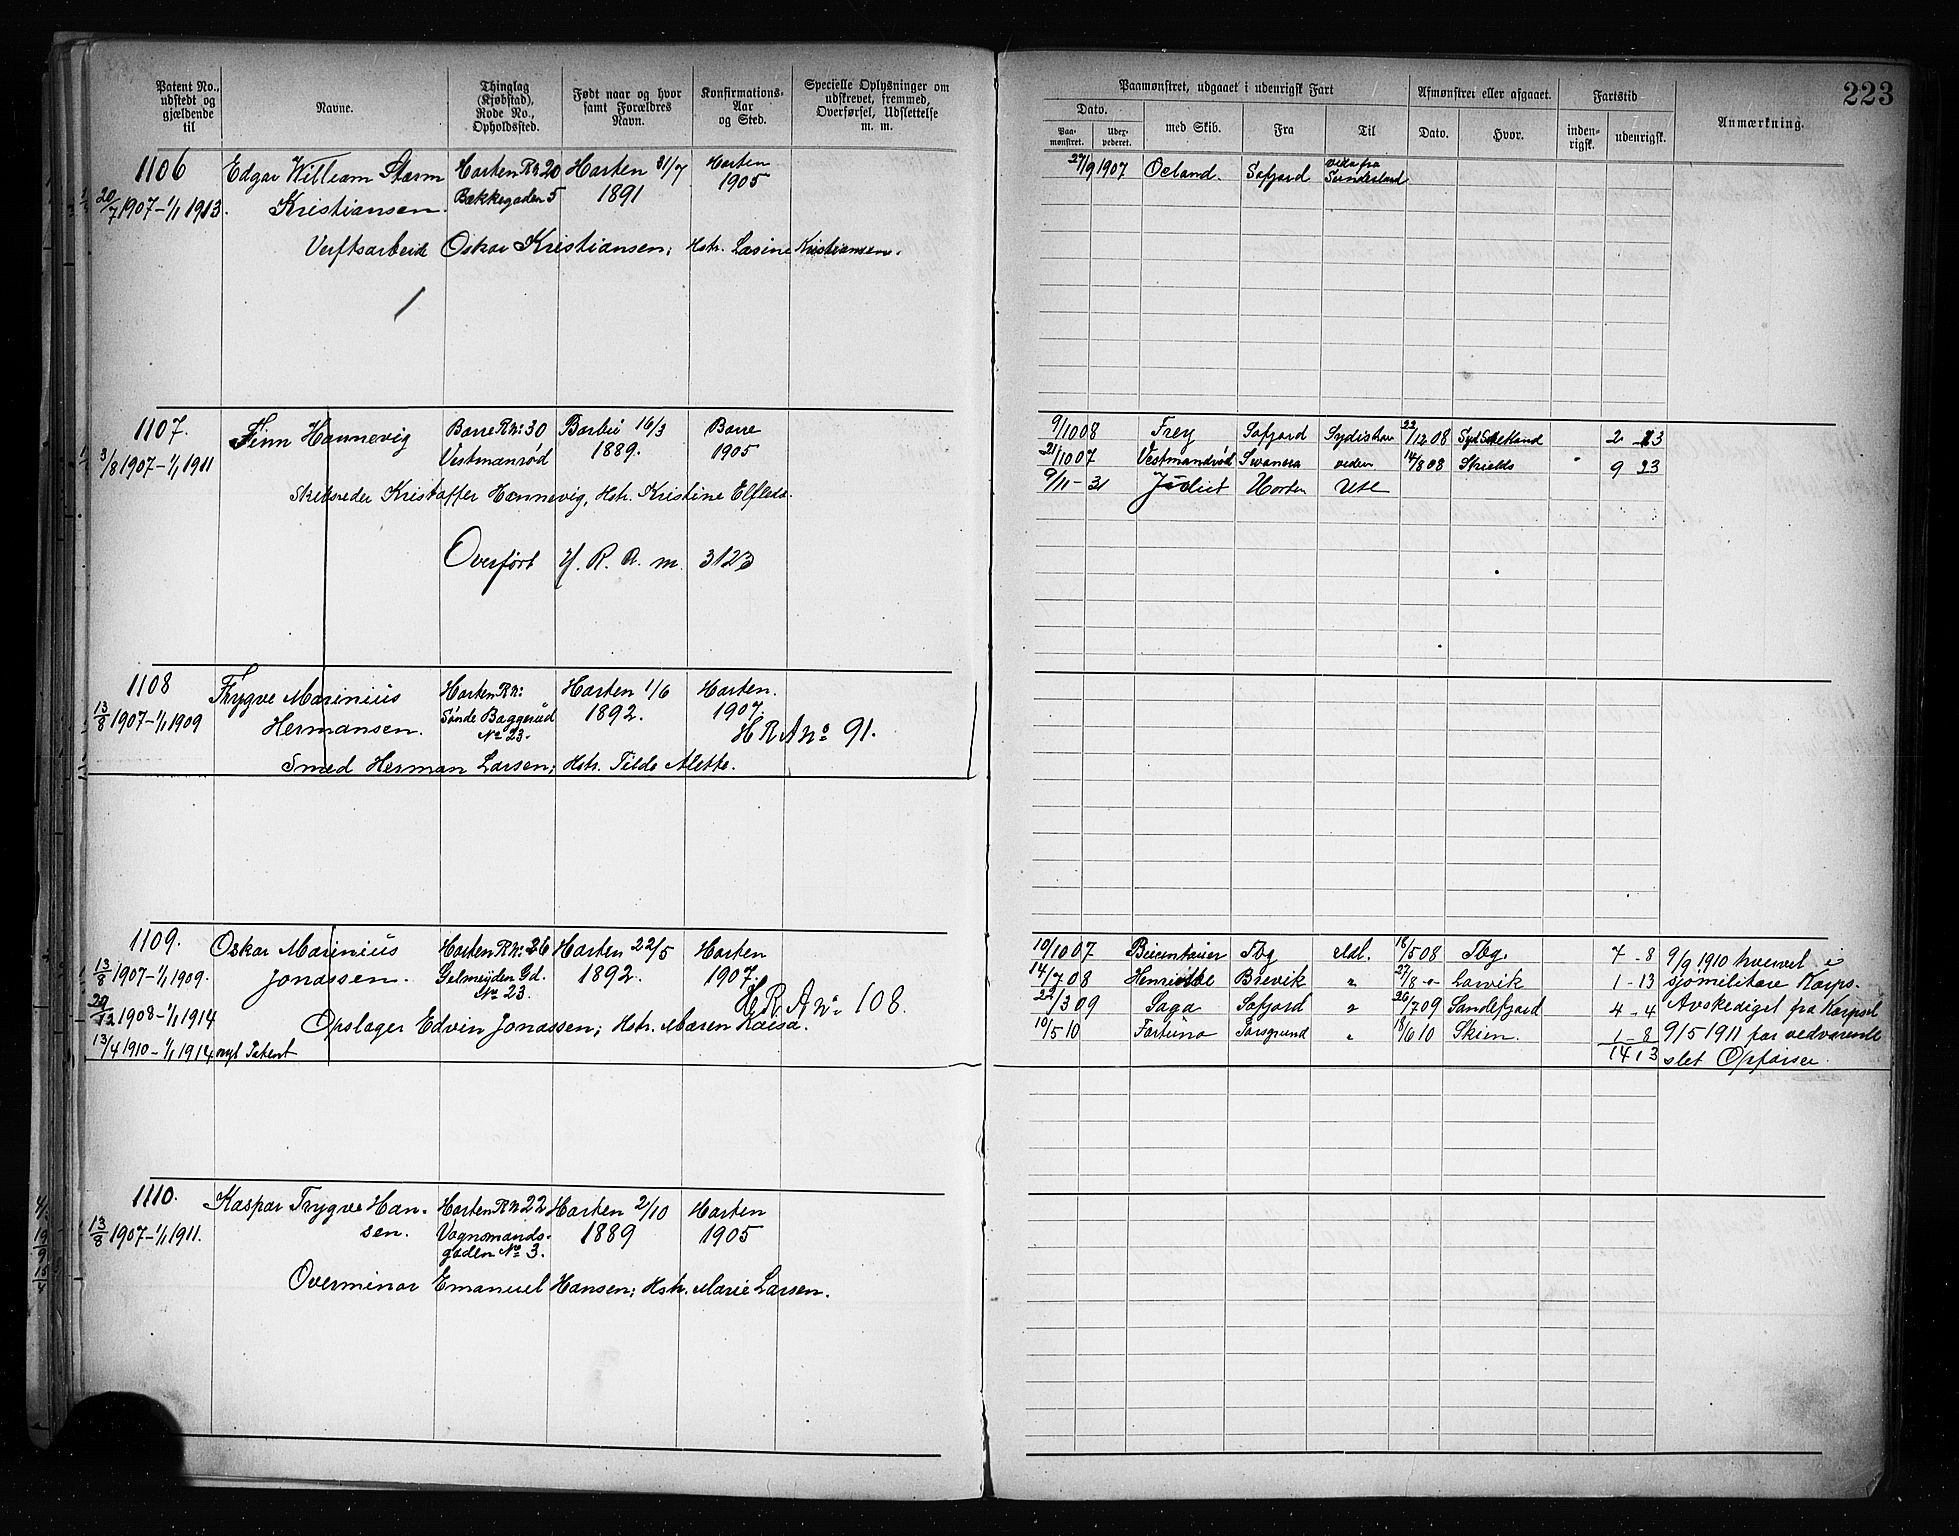 Patent No., udstedt og gjældende til
Navne.
Thinglag (Kjøbstad), Rode No., Opholdssted.
Født naar og hvor samt Forældres Navn.
Konfirmations-Aar og Sted.
Specielle Oplysninger om udskrevet, fremmed, Overførsel, Udslettelse m. m.
1106 Edgar William Storm Horten R№20 Horten 31/7 Horten
20/7 1907-1/1 1913. Kristiansen. Bakkegaden 5 1891 1905
Verftsarbeid Oskar Kristiansen; Hstr. Lasine Kristiansen.
1107. Finn Hannevig Borre R№:30 Barbu 16/3 Borre
3/8 1907-1/1 1911 Vestmanrød 1889. 1905
Skibsreder Kristoffer Hannevig, Hstr. Kristine Elfleda.
Overført H. R. A. m. 3123
1108 Trygve Marinius Horten R№: Horten 1/6 Horten.
13/8 1907-1/1 1909 Hermansen. Søndre Baggerud 1892. 1907.
№ 23. H R A №: 91.
Smed Herman Larsen; Hstr. Tilda Alette.
1109. Oskar Marinius Horten R№:26 Horten 22/5 Horten
13/8 1907-1/1 1909. Jonassen. Gelmeyden Gd. 1892. 1907.
№ 23. H. R. A №: 108.
29/12 1908-1/1 1914 Opslager Edvin Jonassen; Hstr. Maren Kaisa.
13/4 1910-1/1 1914 nyt Patent
1110. Kaspar Trygve Han- Horten R№22 Horten 2/10 Horten
13/8 1907-1/1 1911. sen. Vognmands- 1889 1905
gaden № 3.
Overminør Emanuel Hansen; Hstr. Marie Larsen.
223
Paamønstret, udgaaet i udenrigsk Fart
Afmønstret eller afgaaet.
Fartstid
Anmærkning.
Dato.
Paa-mønstret.
med Skib.
Fra
Til
Dato.
Hvor.
inden-rigsk.
udenrigsk.
27/9 1907 Øeland. Sofjord Sunderland
9/10 08 Frey Sofjord 22/12 08 2 - 13
21/10 07 Vestmandrød Swansea 14/8 08 Shields 9 23
9/11 - 31 Horten Ute
10/10 07 Tbg Udl. 18/5 08 Tbg. 7 - 8
14/7 08 Henriette Brevik " 27/8 -"- Larvik 1 - 13
22/3 09 Saga Sofjord " 26/7 09 Sandefjord 4 - 4
10/5 10 Fortuna Porsgrund " 18/6 10 Skien. 1 - 8
14 13
9/9 1910 hvervet i
sjomilitære Korps.
Avskediget fra Korpset
9/5 1911 for vedvarende
slet Opførsel.